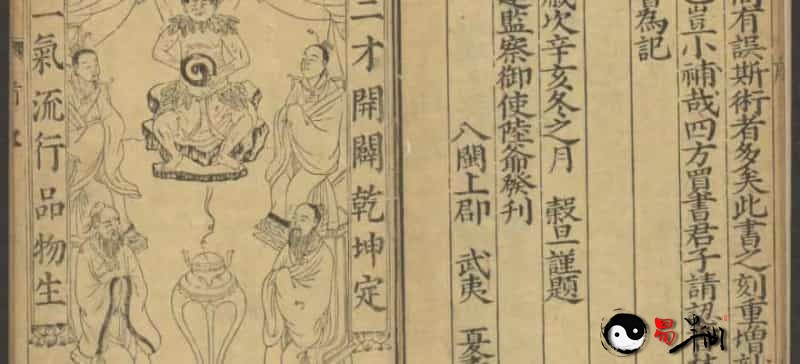 有誤斯術者多矣此書之刻重增
豈小補哉四方買書君子請認
為記
歲次辛亥冬之月 穀旦謹題
建監察御使陸爺發刊
八閩上郡 武夷 夏
三才開闢乾坤定
一氣流行品物生
易